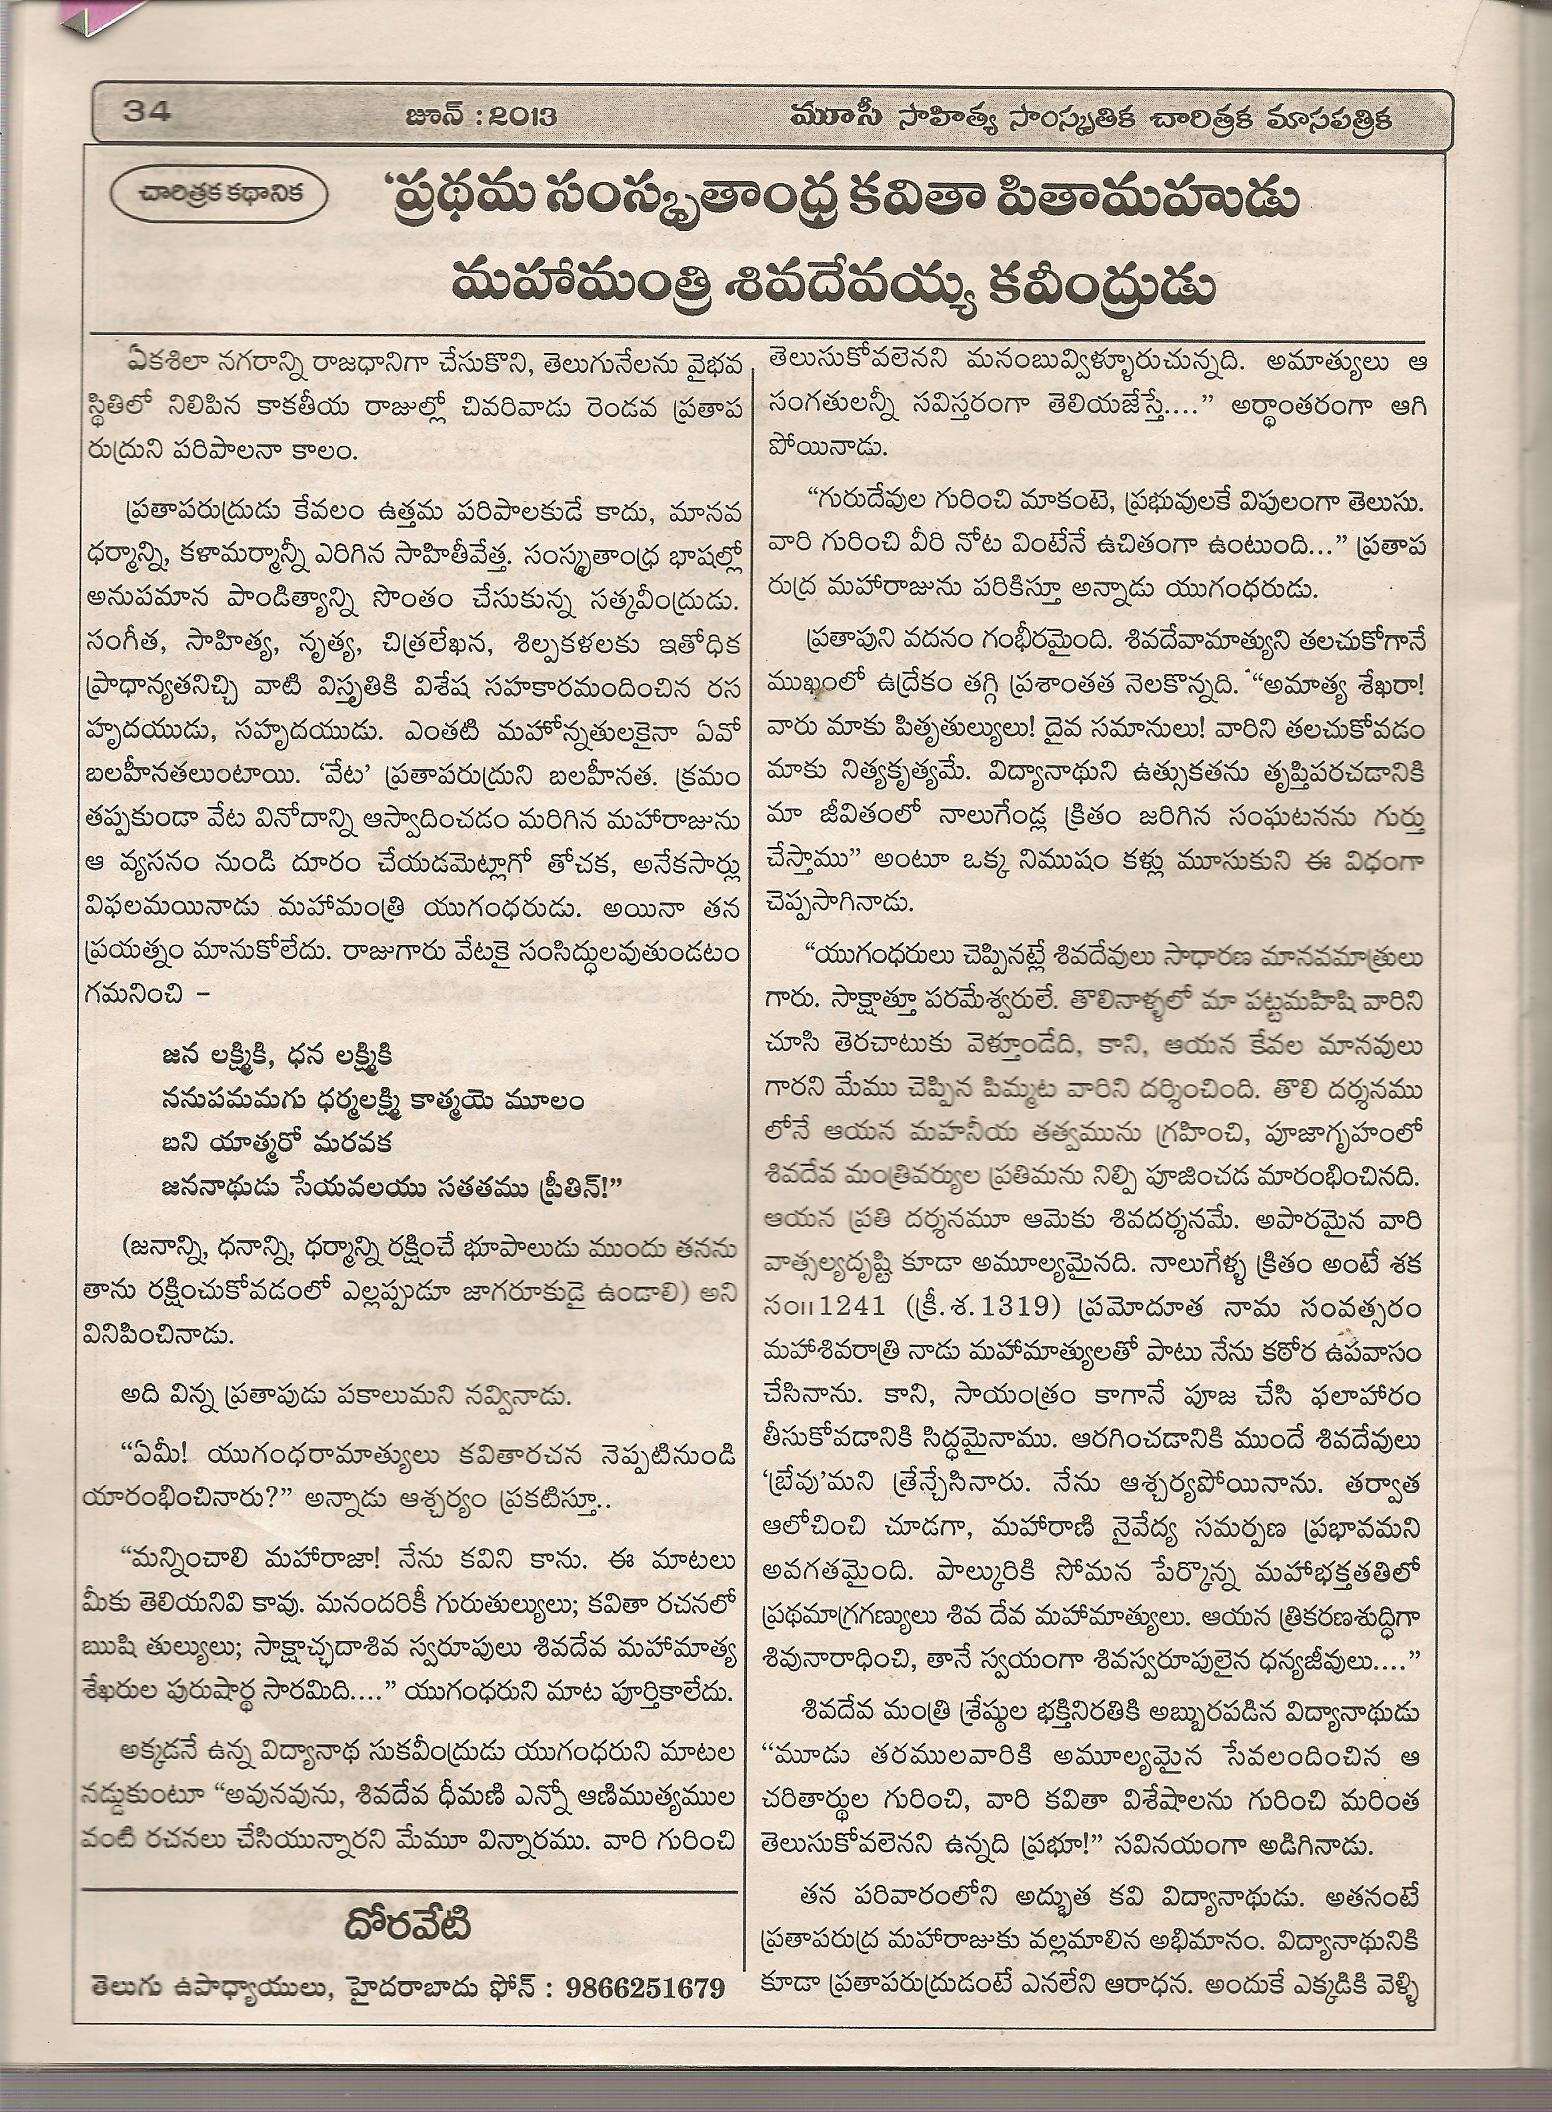 34
జూన్ : 2013
మూసీ సాహిత్య సాంస్కృతిక చారిత్రక మాసపత్రిక
చారిత్రక కథానిక
‘ప్రథమ సంస్కృతాంధ్ర కవితా పితామహుడు
మహామంత్రి శివదేవయ్య కవీంద్రుడు
ఏకశిలా నగరాన్ని రాజధానిగా చేసుకొని, తెలుగునేలను వైభవ
స్థితిలో నిలిపిన కాకతీయ రాజుల్లో చివరివాడు రెండవ ప్రతాప
రుద్రుని పరిపాలనా కాలం.
ప్రతాపరుద్రుడు కేవలం ఉత్తమ పరిపాలకుడే కాదు, మానవ
ధర్మాన్ని, కళామర్మాన్నీ ఎరిగిన సాహితీవేత్త. సంస్కృతాంధ్ర భాషల్లో
అనుపమాన పాండిత్యాన్ని సొంతం చేసుకున్న సత్కవీంద్రుడు.
సంగీత, సాహిత్య, నృత్య, చిత్రలేఖన, శిల్పకళలకు ఇతోధిక
ప్రాధాన్యతనిచ్చి వాటి విస్తృతికి విశేష సహకారమందించిన రస
హృదయుడు, సహృదయుడు. ఎంతటి మహోన్నతులకైనా ఏవో
బలహీనతలుంటాయి. ‘వేట’ ప్రతాపరుద్రుని బలహీనత. క్రమం
తప్పకుండా వేట వినోదాన్ని ఆస్వాదించడం మరిగిన మహారాజును
ఆ వ్యసనం నుండి దూరం చేయడమెట్లాగో తోచక, అనేకసార్లు
విఫలమయినాడు మహామంత్రి యుగంధరుడు. అయినా తన
ప్రయత్నం మానుకోలేదు. రాజుగారు వేటకై సంసిద్ధులవుతుండటం
గమనించి –
జన లక్ష్మికి, ధన లక్ష్మికి
ననుపమమగు ధర్మలక్ష్మి కాత్మయె మూలం
బని యాత్మరో మరవక
జననాథుడు సేయవలయు సతతము ప్రీతిన్!”
(జనాన్ని, ధనాన్ని, ధర్మాన్ని రక్షించే భూపాలుడు ముందు తనను
తాను రక్షించుకోవడంలో ఎల్లప్పుడూ జాగరూకుడై ఉండాలి) అని
వినిపించినాడు.
అది విన్న ప్రతాపుడు పకాలుమని నవ్వినాడు.
“ఏమీ! యుగంధరామాత్యులు కవితారచన నెప్పటినుండి
యారంభించినారు?” అన్నాడు ఆశ్చర్యం ప్రకటిస్తూ..
“మన్నించాలి మహారాజా! నేను కవిని కాను. ఈ మాటలు
మీకు తెలియనివి కావు. మనందరికీ గురుతుల్యులు; కవితా రచనలో
ఋషి తుల్యులు; సాక్షాచ్ఛదాశివ స్వరూపులు శివదేవ మహామాత్య
శేఖరుల పురుషార్థ సారమిది....” యుగంధరుని మాట పూర్తికాలేదు.
అక్కడనే ఉన్న విద్యానాథ సుకవీంద్రుడు యుగంధరుని మాటల
నడ్డుకుంటూ “అవునవును, శివదేవ ధీమణి ఎన్నో ఆణిముత్యముల
వంటి రచనలు చేసియున్నారని మేమూ విన్నారము. వారి గురించి
దోరవేటి
తెలుగు ఉపాధ్యాయులు, హైదరాబాదు ఫోన్ : 9866251679
తెలుసుకోవలెనని మనంబువ్విళ్ళూరుచున్నది. అమాత్యులు ఆ
సంగతులన్నీ సవిస్తరంగా తెలియజేస్తే....” అర్థాంతరంగా ఆగి
పోయినాడు.
“గురుదేవుల గురించి మాకంటె, ప్రభువులకే విపులంగా తెలుసు.
వారి గురించి వీరి నోట వింటేనే ఉచితంగా ఉంటుంది...” ప్రతాప
రుద్ర మహారాజును పరికిస్తూ అన్నాడు యుగంధరుడు.
ప్రతాపుని వదనం గంభీరమైంది. శివదేవామాత్యుని తలచుకోగానే
ముఖంలో ఉద్రేకం తగ్గి ప్రశాంతత నెలకొన్నది. “అమాత్య శేఖరా!
వారు మాకు పితృతుల్యులు! దైవ సమానులు! వారిని తలచుకోవడం
మాకు నిత్యకృత్యమే. విద్యానాథుని ఉత్సుకతను తృప్తిపరచడానికి
మా జీవితంలో నాలుగేండ్ల క్రితం జరిగిన సంఘటనను గుర్తు
చేస్తాము” అంటూ ఒక్క నిముషం కళ్లు మూసుకుని ఈ విధంగా
చెప్పసాగినాడు.
“యుగంధరులు చెప్పినట్లే శివదేవులు సాధారణ మానవమాత్రులు
గారు. సాక్షాత్తూ పరమేశ్వరులే. తొలినాళ్ళలో మా పట్టమహిషి వారిని
చూసి తెరచాటుకు వెళ్తూండేది, కాని, ఆయన కేవల మానవులు
గారని మేము చెప్పిన పిమ్మట వారిని దర్శించింది. తొలి దర్శనము
లోనే ఆయన మహనీయ తత్వమును గ్రహించి, పూజాగృహంలో
శివదేవ మంత్రివర్యుల ప్రతిమను నిల్పి పూజించడ మారంభించినది.
ఆయన ప్రతి దర్శనమూ ఆమెకు శివదర్శనమే. అపారమైన వారి
వాత్సల్యదృష్టి కూడా అమూల్యమైనది. నాలుగేళ్ళ క్రితం అంటే శక
సం॥1241 (క్రీ.శ.1319) ప్రమోదూత నామ సంవత్సరం
మహాశివరాత్రి నాడు మహామాత్యులతో పాటు నేను కఠోర ఉపవాసం
చేసినాను. కాని, సాయంత్రం కాగానే పూజ చేసి ఫలాహారం
తీసుకోవడానికి సిద్ధమైనాము. ఆరగించడానికి ముందే శివదేవులు
‘బ్రేవు’మని త్రేన్చేసినారు. నేను ఆశ్చర్యపోయినాను. తర్వాత
ఆలోచించి చూడగా, మహారాణి నైవేద్య సమర్పణ ప్రభావమని
అవగతమైంది. పాల్కురికి సోమన పేర్కొన్న మహాభక్తతతిలో
ప్రథమాగ్రగణ్యులు శివ దేవ మహామాత్యులు. ఆయన త్రికరణశుద్ధిగా
శివునారాధించి, తానే స్వయంగా శివస్వరూపులైన ధన్యజీవులు....”
శివదేవ మంత్రి శ్రేష్ఠుల భక్తినిరతికి అబ్బురపడిన విద్యానాథుడు
“మూడు తరములవారికి అమూల్యమైన సేవలందించిన ఆ
చరితార్థుల గురించి, వారి కవితా విశేషాలను గురించి మరింత
తెలుసుకోవలెనని ఉన్నది ప్రభూ!” సవినయంగా అడిగినాడు.
తన పరివారంలోని అద్భుత కవి విద్యానాథుడు. అతనంటే
ప్రతాపరుద్ర మహారాజుకు వల్లమాలిన అభిమానం. విద్యానాథునికి
కూడా ప్రతాపరుద్రుడంటే ఎనలేని ఆరాధన. అందుకే ఎక్కడికి వెళ్ళి